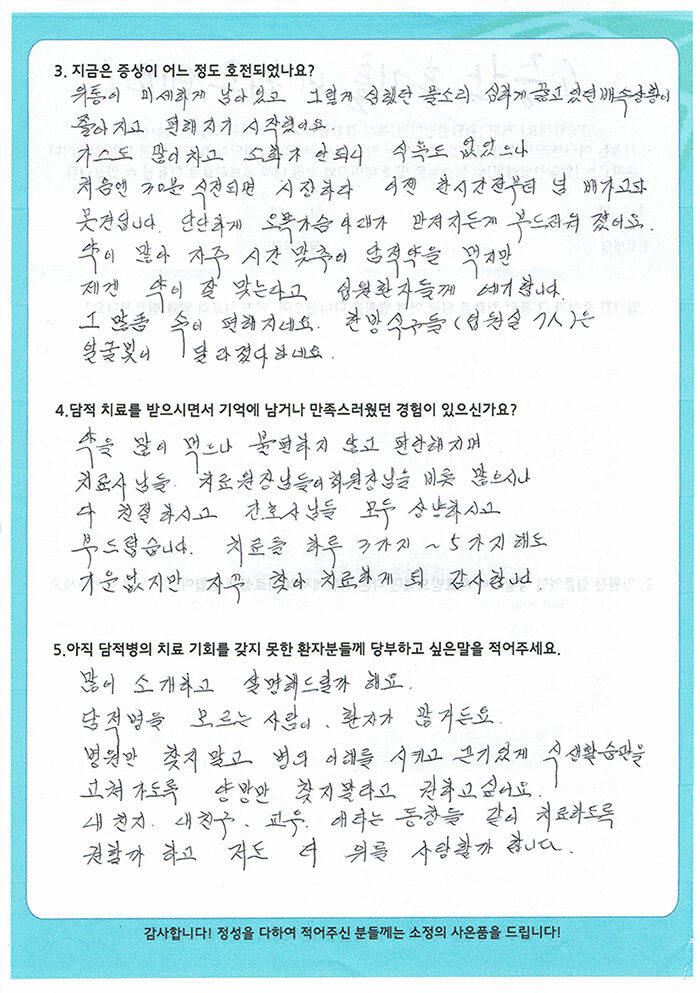 3. 지금은 증상이 어느 정도 호전되었나요?
위통이 미세하게 남아있고 그렇게 심했던 물소리, 심하게 끓고 있던 배속 상황이
줄어지고 편해지기 시작했어요
가스도 많이차고 소화가 안되니 식욕도 없었으나
처음엔 30분 식전되면 시장하다 이젠 한시간전부터 넘 배가고파
못견딥니다. 단단하게 오목가슴 4대가 만져지든게 부드러워 졌어요.
약이 많아 자주 시간 맞추어 담적약을 먹지만
제겐 약이 잘 맞는다고 입원환자들께 얘기합니다.
그 만큼 속이 편해지네요. 한방식구들(입원실 7人)는
얼굴빛이 달라졌다하네요.
4.담적 치료를 받으시면서 기억에 남거나 만족스러웠던 경험이 있으신가요?
약을 많이 먹으나 불편하지 않고 편안해지며
치료사님들. 치료원장님들이 원장님을 비롯 많으시나
다 친절하시고 간호사님들 모두 상냥하시고
부드럽습니다. 치료를 하루 3가지 ~ 5가지 해도
기운없지만 자꾸 찾아 치료하게 되 감사합니다.
5.아직 담적병의 치료 기회를 갖지 못한 환자분들께 당부하고 싶은말을 적어주세요.
많이 소개하고 설명해드릴까 해요.
담적병을 모르는 사람이, 환자가 많거든요.
병원만 찾지말고 병의 이해를 시키고 끈기있게 식생활습관을
고쳐가도록 양방만 찾지말라고 권하고싶어요.
내 친지, 내친구, 교우, 애타는 동창들 같이 치료하도록
권할까 하고 저도 더 위를 사랑할까 합니다.
감사합니다! 정성을 다하여 적어주신 분들께는 소정의 사은품을 드립니다!